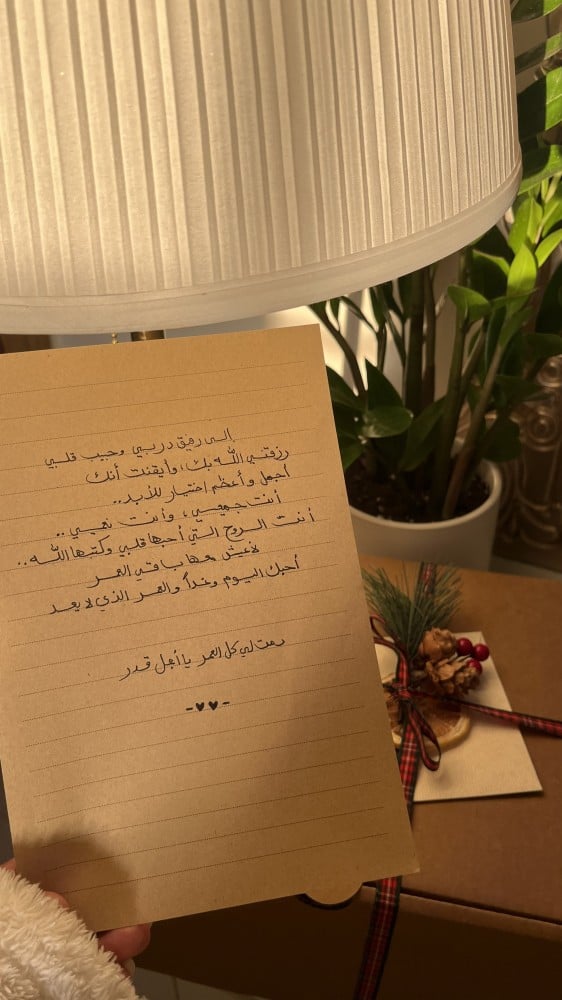 إلى رفيق دربي وحبيب قلبي
رزقني الله بك، وأيقنت أنك
أجمل وأعظم اختيار للأبد..
أنت جميعي، وأنت نصيبي..
أنت الروح التي أحبها قلبي وكتبها الله..
لأعيش معها باقي العمر
أحبك اليوم وغداً والعمر الذي لا يعد
دمت لي كل العمر يا أجمل قدر